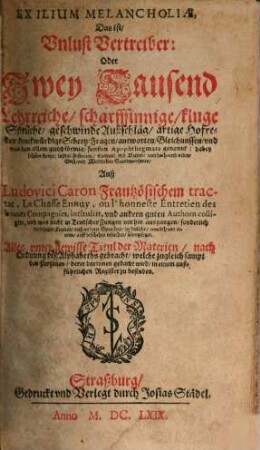 EXILIUM MELANCHOLIÆ,
Das ist/
Unlust Vertreiber:
Oder
Zwey Tausend
Lehrreiche/ scharffsinnige/ kluge
Sprüche/ geschwinde Außschläg/ artige Hofre-
den/ denckwürdige Schertz/ Fragen/ antworten/ Gleichnussen/ und
was dem allem gleichförmig/ sonsten Apophthegmata genennet/
Auß
Ludovici Caron Frantzösischem trac-
tat, Le Chasse Ennuy, ou l' honneste Entretien des
bonnes Compagnies, intitulirt, und andern guten Authorn
Alles unter gewisse Titul der Materien/ nach
Ordnung deß Alphabeths gebracht/ welche zugleich sampt
den Personen/ derer darinnen gedacht wird/ in einem auß-
führlichen Register zu befinden.
Straßburg/
Gedruckt und Verlegt durch Josias Städel.
Anno M. DC. LXIX.